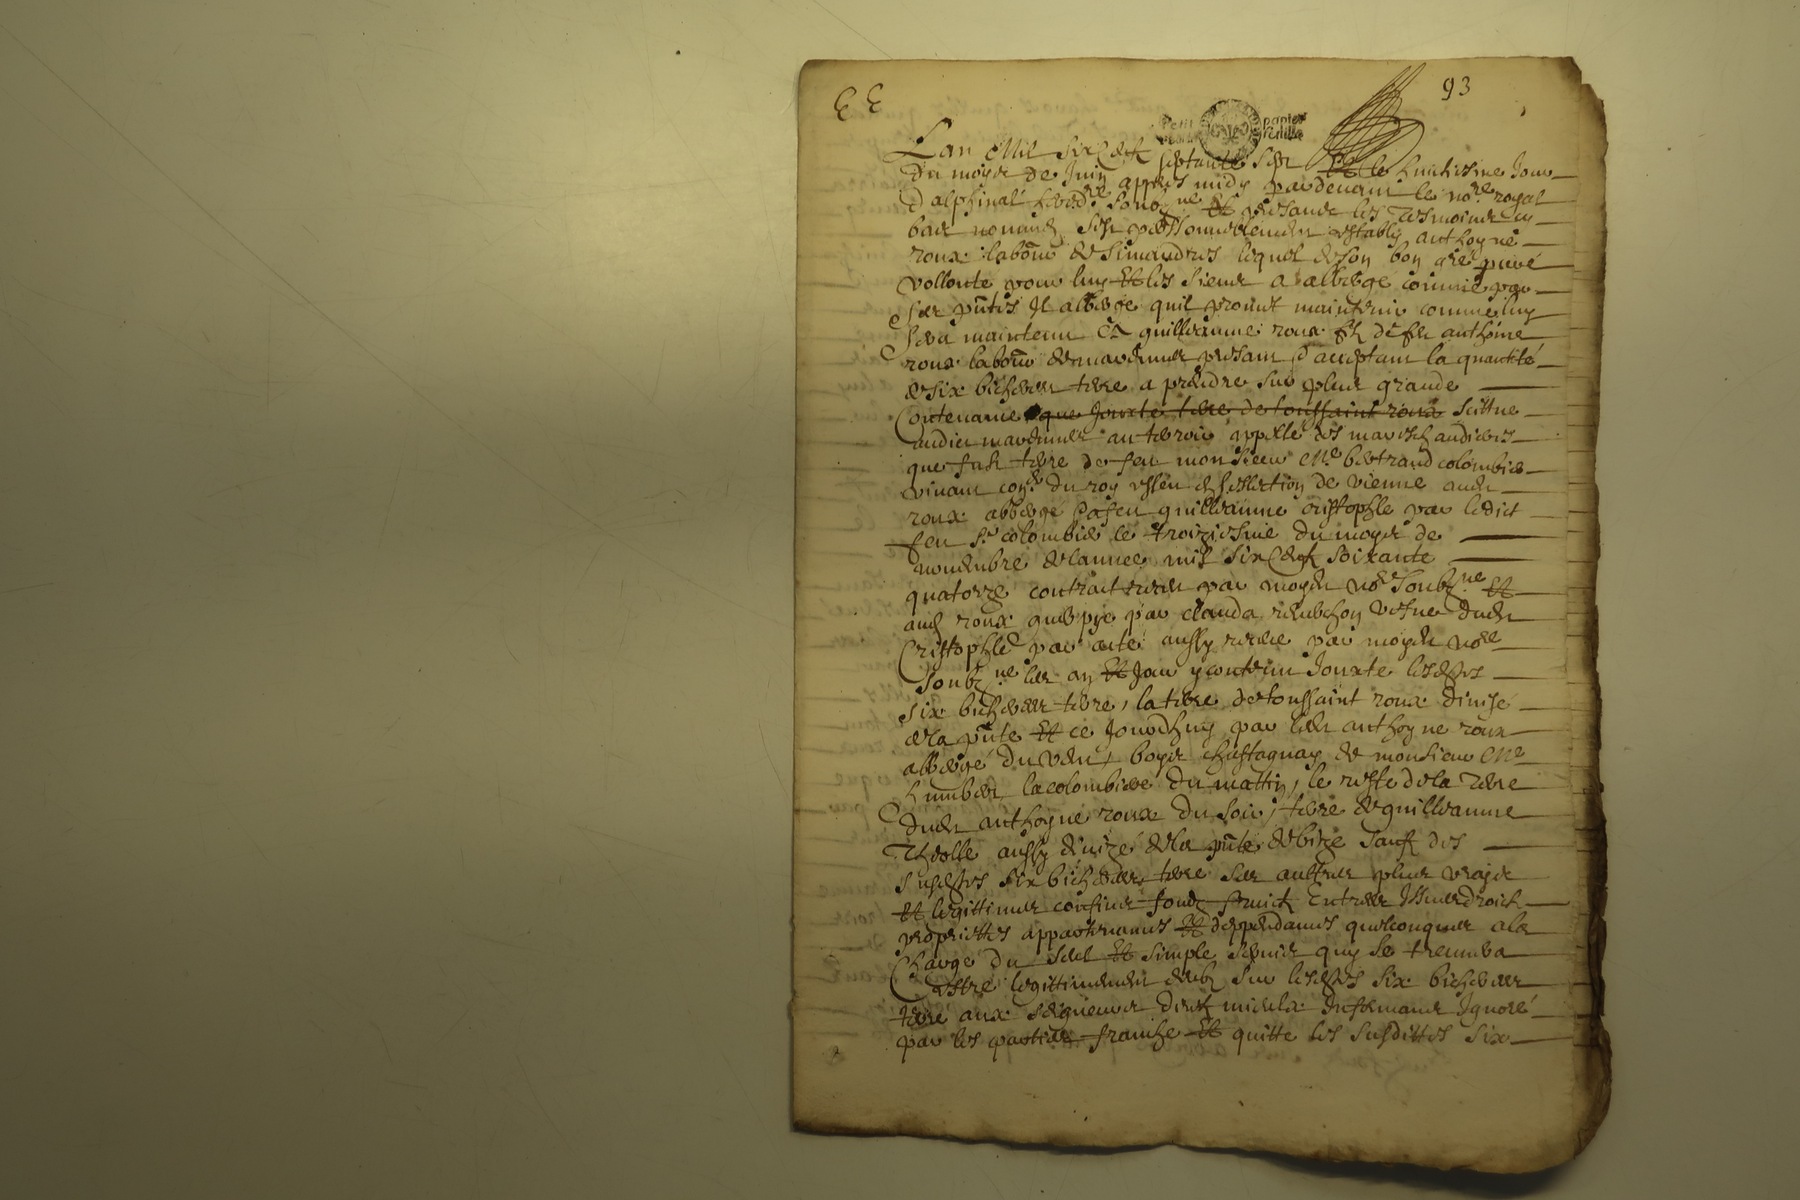 E E
93
Petit papier
Lan Mil six Centz septante sept Et le huictiesme Jour
du moys de Juin appres midy pardevant le no.re royal
dalphinal heredre soubzne Et presance les tesmoins cy
bas nommes sest personnellement estably anthoyne
roux labor de simandres lequel de son bon gré pure
vollonte pour luy Et les siens a alberge comme par
ses pntes Il alberge quil promet maintenir comme luy
sera maintenu Ca guilleaume roux filz de feu anthoine
roux labor de marennes presant d acceptant la quantité
de six bicherees terre a prendre sur plus grande
Contenance que Jouxte terre de toussaint roux scittue
audict marennes au terroir appellé les mareschaudieres
que fust terre de feu monsieur Me bertrand colombier
vivant coner du roy esleu en lesllection de vienne audit
roux abberge feu guilleaume cristophle par ledict
feu sr colombier le troiziesme du moys de
novembre de lannee mil six Centz soixante
quatorze contract receu par moydit nore soubzne Et
audit roux guerpye par clauda vefve dudit
Cristophle par acte aussy receue par moydit nore
soubzne les an Et Jour y contenu Jouxte lesdites
six bicherees terre, la terre de toussaint roux divise
de la pnte Et ce Jourdhuy par ledit anthoyne roux
albergé du vent, boys chastagnay de monsieur Me
humbert lacolombiere du mattin, le reste de la terre
dudit anthoyne roux du soir, terre de guilleaume
aussy divizé de la pnte de bize sauf des
susdites six bicherees terre ses aultres plus vrays
Et legittimes confins fondz fruictz Entrees Issues droictz
proprietes appartenances Et deppendances quelconques a la
Charge du Et simple servis quy se treuvera
estre legittimement deub sur lesdites six bicherees
terre aux seigneurs directz Ignoré
par les parties franche Et quitte les susdittes six